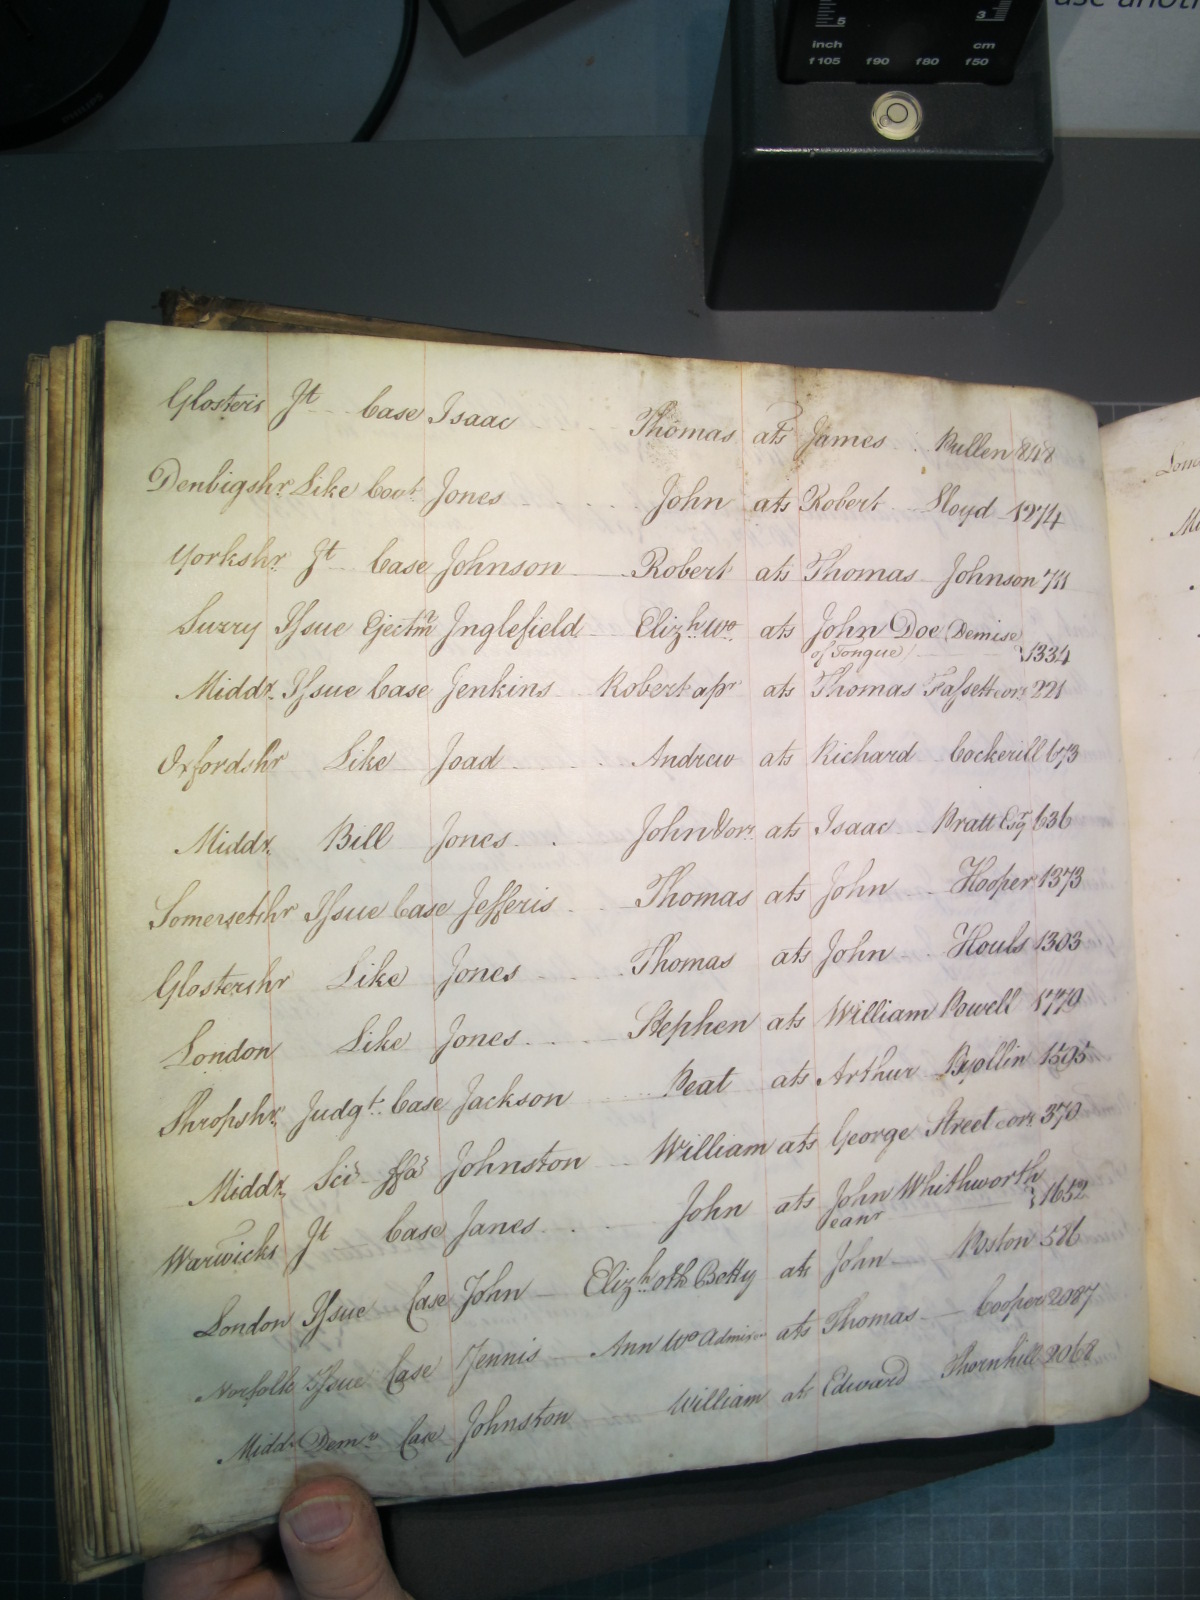 use anoth
5 3
inch cm
f105 f90 f80 f50
PHILIPS
Glosters Jt Case Isaac Thomas ats James Pullen 848
Denbigshr Like Covt Jones John ats Robert Lloyd 1274
Yorkshr Jt Case Johnson Robert ats Thomas Johnson 711
Surry Issue Ejectmt Inglefield Elizh Wo ats John Doe (Demise
of Tongue) 1334
Middx Issue Case Jenkins Robert apr ats Thomas Fassett 221
Oxfordshr Like Joad Andrew ats Richard Cockerill 673
Middx Bill Jones John ats Isaac Pratt Esqr 636
Somersetshr Issue Case Jefferis Thomas ats John Hooper 1373
Glostershr Like Jones Thomas ats John Houls 1303
London Like Jones Stephen ats William Powell 1770
Shropshr Judgt Case Jackson Peat ats Arthur 1595
Middx Sci ffa Johnston William ats George Street 370
Warwicks Jt Case Janes John ats John Whithworth
1652
London Issue Case John Elizh oth Betty ats John Poston 586
Norfolk Issue Case Jennis Ann Wo Admix ats Thomas Cooper 2087
Middx Demr Case Johnston William ats Edward Thornhill 2068